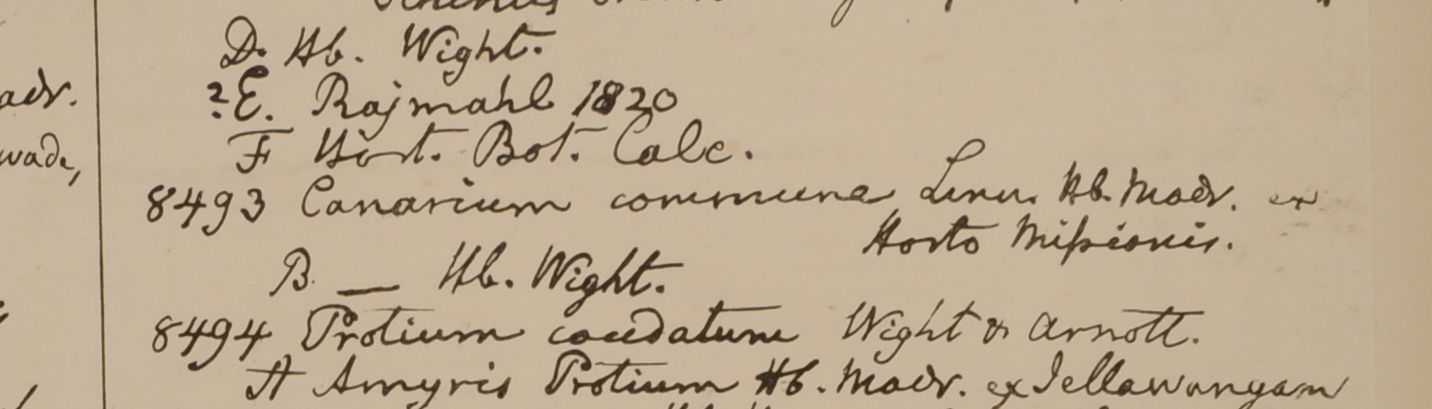 D. Hb. Wight.
?E. Rajmahl 1820
F Hort. Bot. Calc.
8493 Canarium commune Linn. Hb. Madr. ex
Horto Mißionis.
B. — Hb. Wight.
8494 Protium caudatum Wight & Arnott.
A Amyris Protium Hb. Madr. ex Jellawungam
adr.
wade,